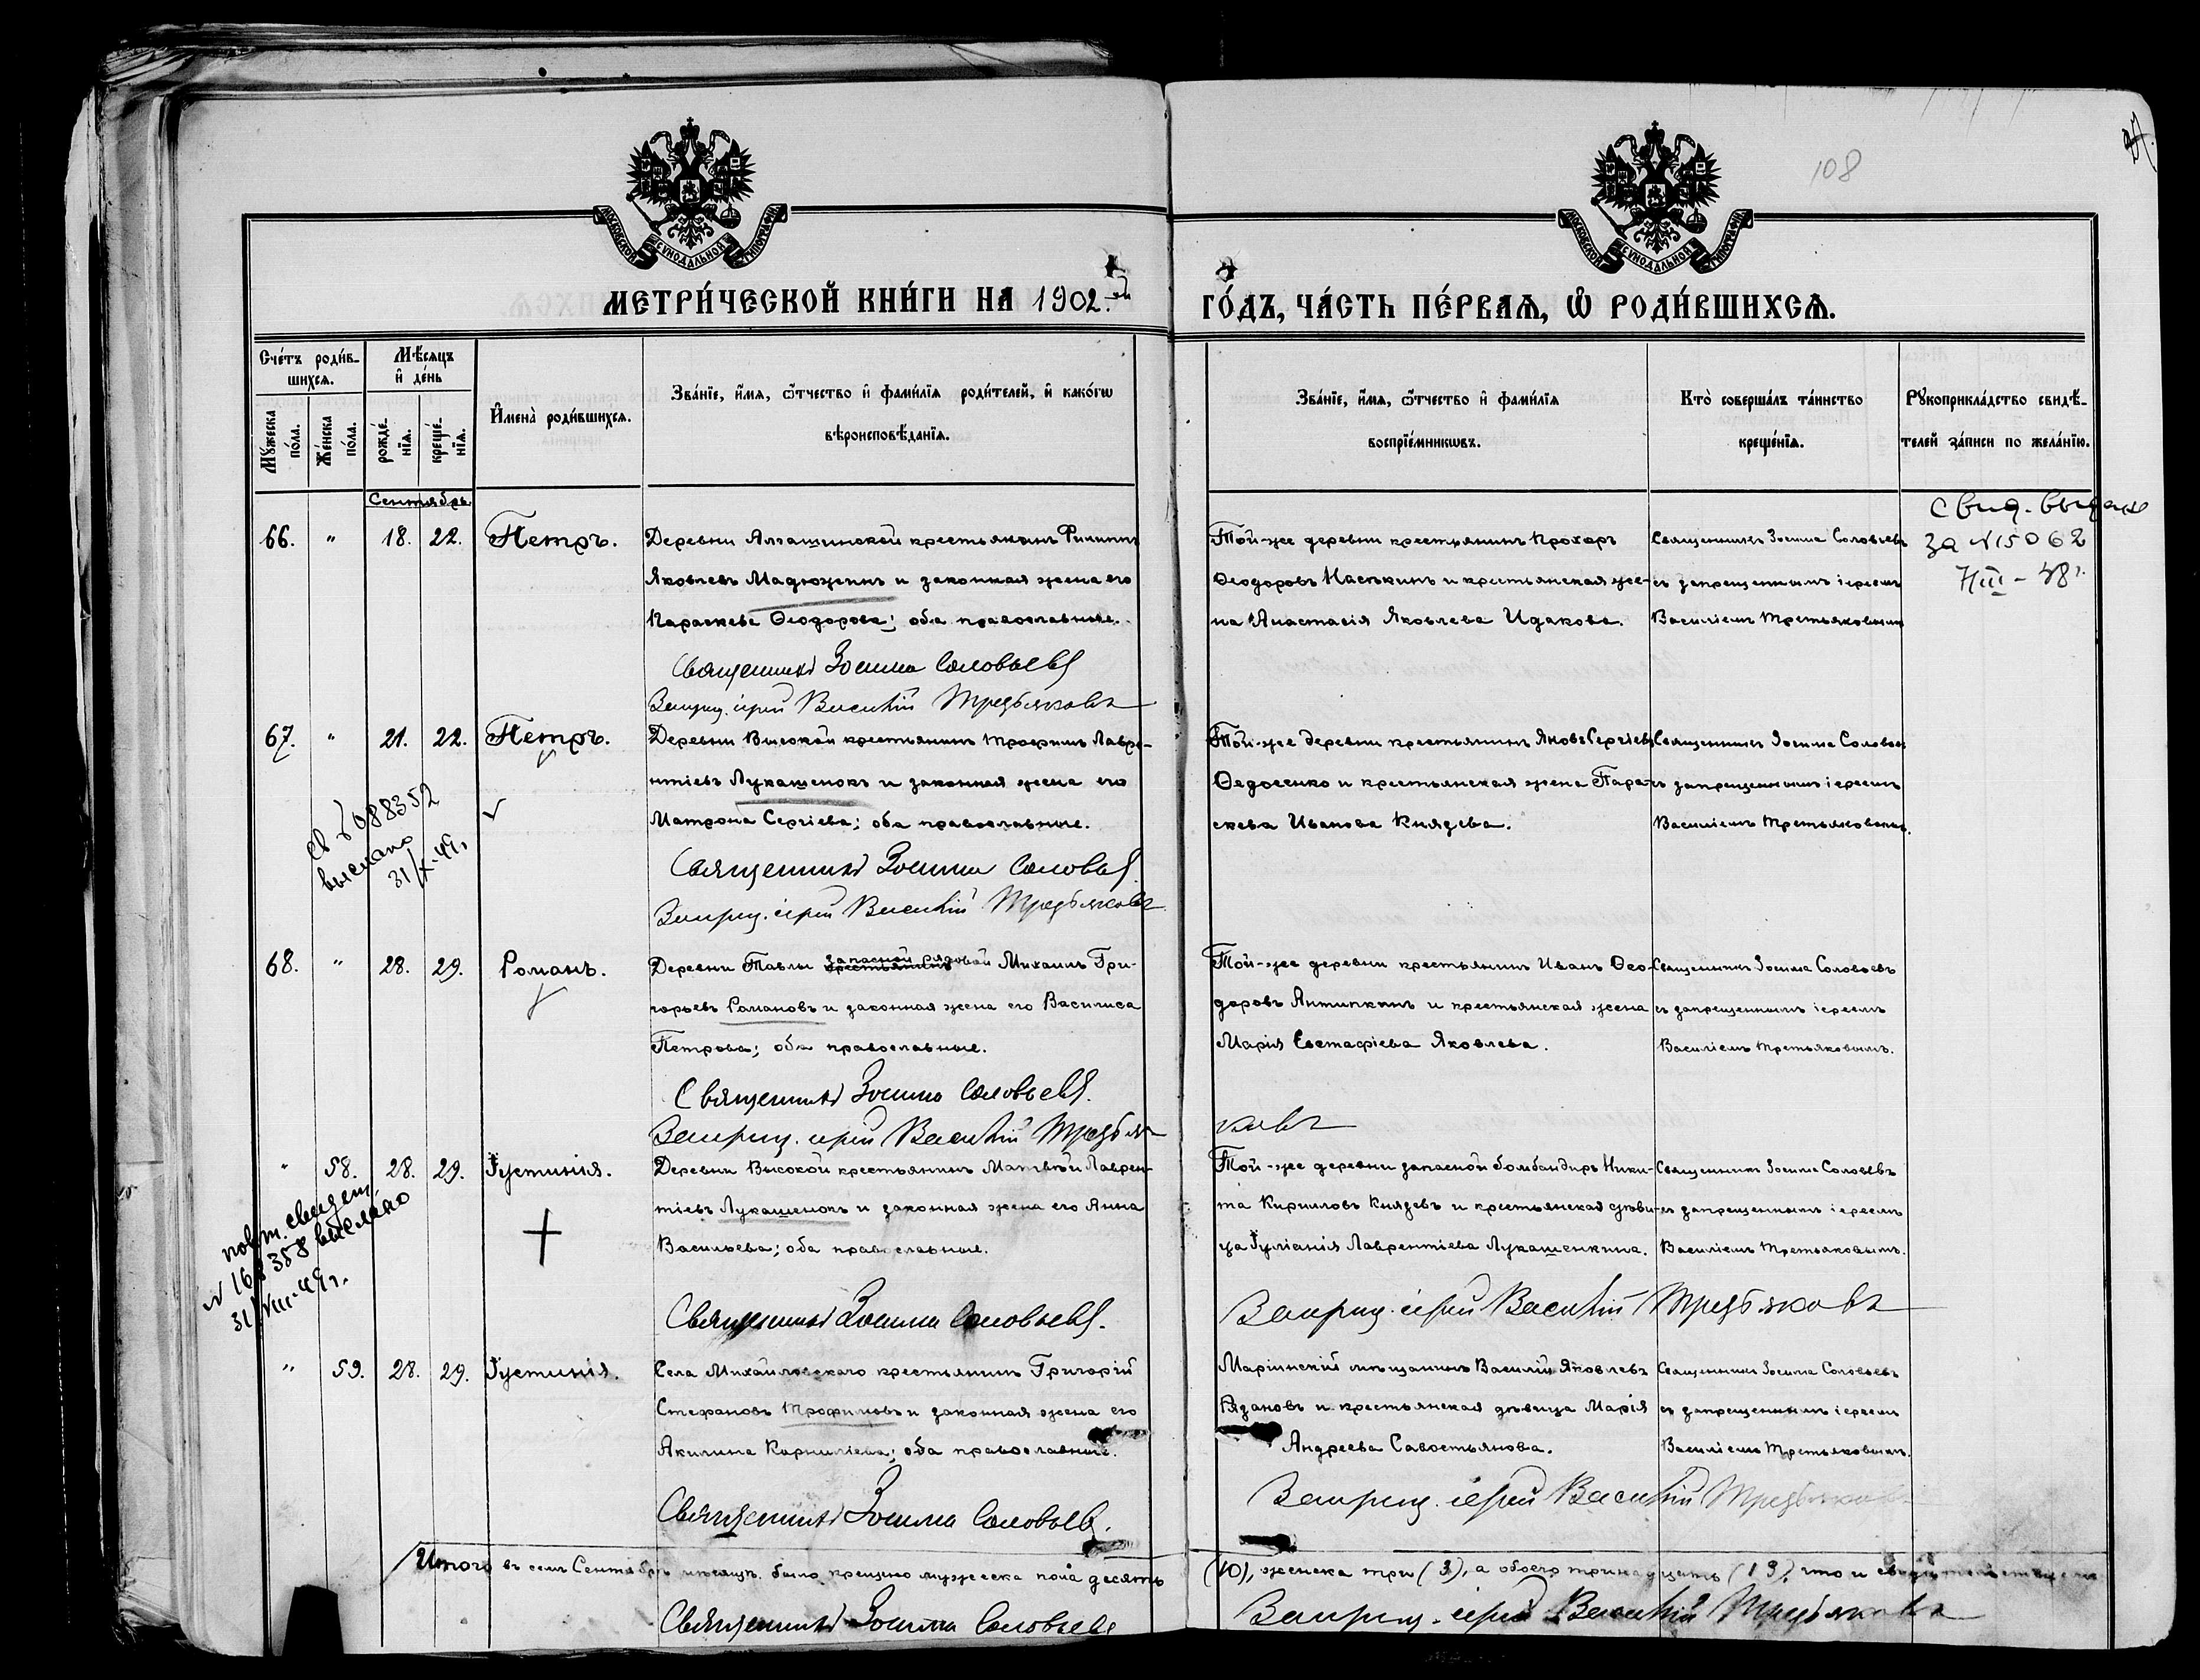 108
МОСКОВСКОЙ СѴНОДАЛЬНОЙ ТИПОГРАФІИ
МОСКОВСКОЙ СѴНОДАЛЬНОЙ ТИПОГРАФІИ
МЕТРИ́ЧЕСКОЙ КНИ́ГИ НА 1902.й
ГО́ДЪ, ЧА́СТЬ ПЕ́РВАЯ, Ѡ РОДИ́ВШИХСЯ.
Сче́тъ роди́в-
шихся.
Мѣ́сяцъ
и де́нь
Му́жеска
по́ла.
Же́нска
по́ла.
рожде́-
нія.
креще́-
нія.
И́мена роди́вшихся.
Зва́ніе, и́мя, ѻ́тчество и фами́лія роди́телей, и како́гѡ
вѣроисповѣ́данія.
Зва́ніе, и́мя, ѻ́тчество и фами́лія
воспріе́мникѡвъ.
Кто̀ соверша́лъ та́инство
креще́нія.
Рукоприкла́дство свидѣ́-
телей за́писи по жела́нію.
Сентябрь
66. " 18. 22. Петръ.
Деревни Алгашинской крестьянинъ Филиппъ
Яковлевъ Мадюжинъ и законная жена его
Параскева Ѳеодорова; оба православные.
Священникъ Зосима Соловьевъ
Запрещ. іерей Василій Третьяковъ
Той-же деревни крестьянинъ Прохоръ
Ѳеодоровъ Насѣкинъ и крестьянская же-
на Анастасія Яковлева Идакова.
Священникъ Зосима Соловьевъ
съ запрещеннымъ іереемъ
Василіемъ Третьяковымъ
Свид. выдано
за №15062
7/III – 48 г.
67. " 21. 22. Петръ.
Деревни Высокой крестьянинъ Трофимъ Лавре-
нтіевъ Лукашенокъ и законная жена его
Матрона Сергіева; оба православные.
Священникъ Зосима Соловьевъ
Запрещ. іерей Василій Третьяковъ
Той-же деревни крестьянинъ Яковъ Сергіевъ
Ѳедосенко и крестьянская жена Пара-
скева Иванова Князева.
Священникъ Зосима Соловьевъ
съ запрещеннымъ іереемъ
Василіемъ Третьяковымъ.
выслано
68. " 28. 29. Романъ.
Деревни Тавлы крестьянинъ запасной рядовой Михаилъ Гри-
горьевъ Романовъ и законная жена его Василиса
Петрова; оба православные.
Священникъ Зосима Соловьевъ.
Запрещ. іерей Василій Третья
ковъ
Той-же деревни крестьянинъ Иванъ Ѳео-
доровъ Антипкинъ и крестьянская жена
Марія Евстафіева Яковлева.
Священникъ Зосима Соловьевъ
съ запрещеннымъ іереемъ
Василіемъ Третьяковымъ.
" 58. 28. 29. Іустинія.
Деревни Высокой крестьянинъ Матвѣй Лаврен-
тіевъ Лукашенокъ и законная жена его Анна
Васильева; оба православные.
Священникъ Зосима Соловьевъ.
Той-же деревни запасной бомбандиръ Ники-
та Кирилловъ Князевъ и крестьянская дѣви-
ца Іуліанія Лаврентіева Лукашенкина.
Священникъ Зосима Соловьевъ
съ запрещеннымъ іереемъ
Василіемъ Третьяковымъ.
Запрещ. іерей Василій Третьяковъ
повт. свидет.
N 168358 выслано
31/VIII-49 г.
" 59. 28. 29. Іустинія.
Села Михайловскаго крестьянинъ Григорій
Стефановъ Трофимовъ и законная жена его
Акилина Корниліева; оба православные.
Священникъ Зосима Соловьевъ.
Маріинскій мѣщанинъ Василій Яковлевъ
и крестьянская дѣвица Марія
Андреева Савостьянова.
Священникъ Зосима Соловьевъ
съ запрещеннымъ іереемъ
Василіемъ Третьяковымъ.
Запрещ. іерей Василій Третьяковъ
Итого въ семъ Сентябрѣ мѣсяцѣ было крещено мужеска пола десять (10), женска три (3), а обоего тринадцать (13), что и свидѣтельствуемъ
Священникъ Зосима Соловьевъ
Запрещ. іерей Василій Третьяковъ